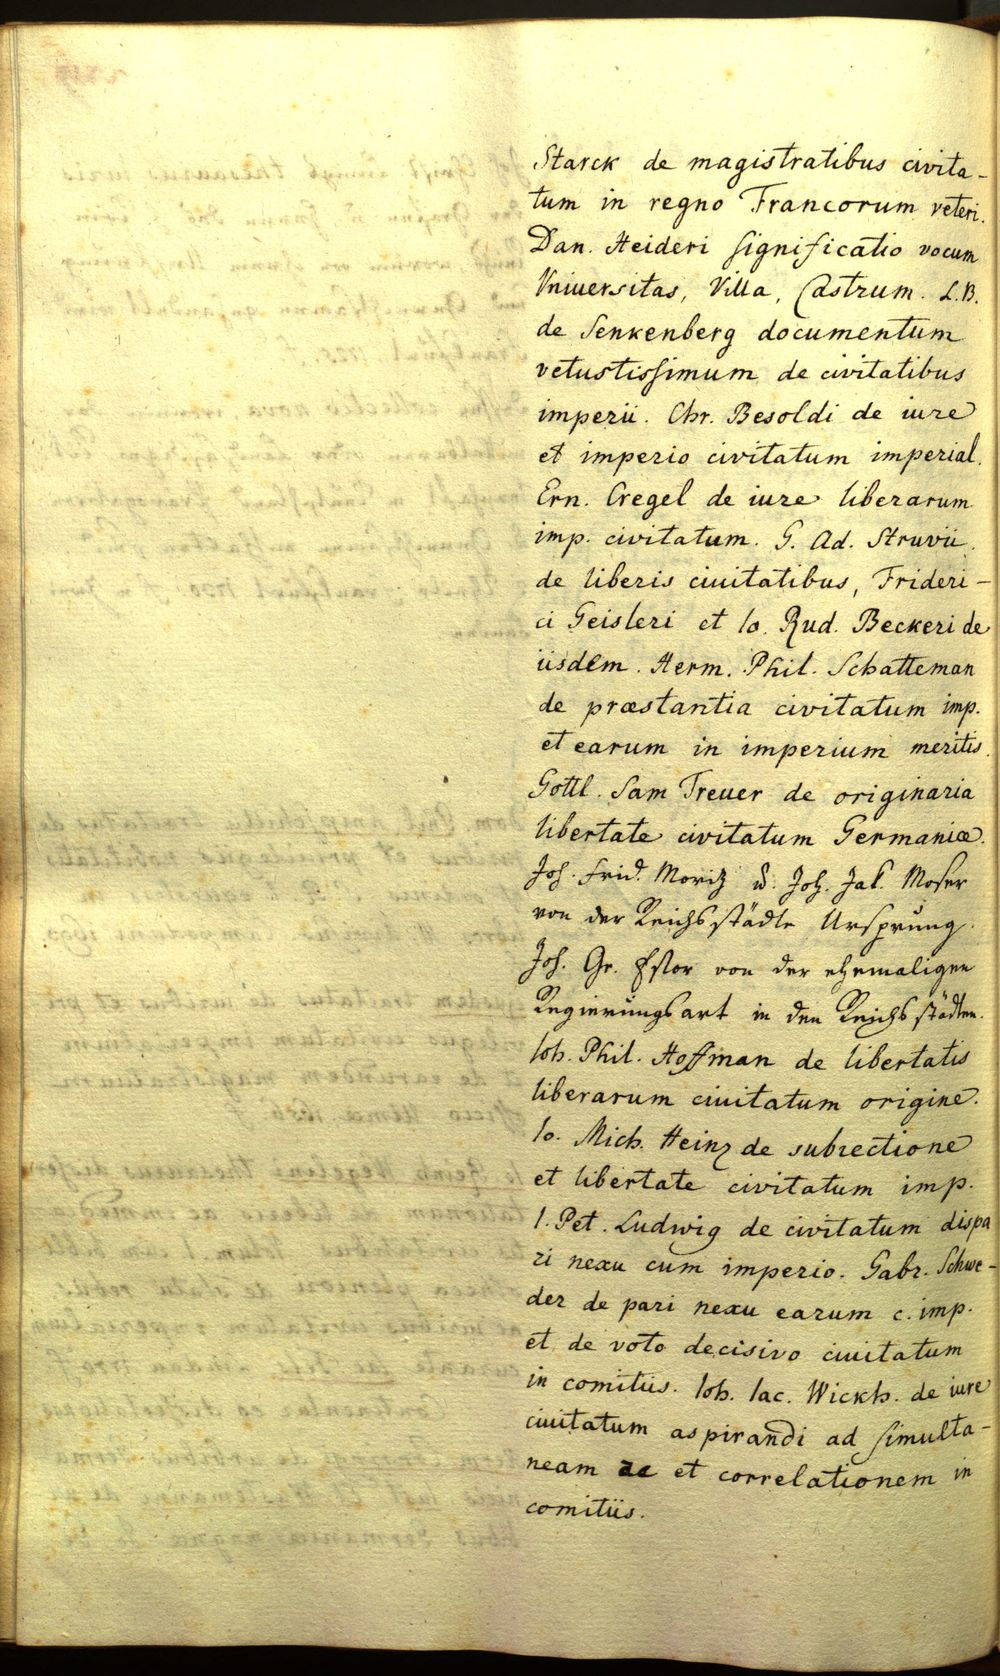 Starck de magistratibus civita-
tum in regno Francorum veteri.
Dan. Heideri significatio vocum
Vniuersitas, Villa, Castrum. L.B.
de Senkenberg documentum
vetustissimum de civitatibus
imperii. Chr. Besoldi de iure
et imperio civitatum imperial.
Ern. Cregel de iure liberarum
imp. civitatum. G. Ad. Struvii
de liberis ciuitatibus, Frideri-
ci Geisleri et Io. Rud. Beckeri de
iisdem. Herm. Phil. Schatteman
de præstantia civitatum imp.
et earum in imperium meritis.
Gottl. Sam Treuer de originaria
libertate civitatum Germaniæ.
Joh. Frid. Moritz u. Joh. Jak. Moser
von der Reichsstädte Ursprung.
Joh. Ge. Estor von der ehemaligen
Regierungsart in den Reichsstädten.
Ioh. Phil. Hoffman de libertatis
liberarum ciuitatum origine.
Io. Mich. Heinz de subiectione
et libertate civitatum imp.
I. Pet. Ludwig de civitatum dispa
ri nexu cum imperio. Gabr. Schwe-
der de pari nexu earum c. imp.
et de voto decisivo ciuitatum
in comitiis. Ioh. Iac. Wickh. de iure
ciuitatum aspirandi ad simulta-
neam et correlationem in
comitiis.